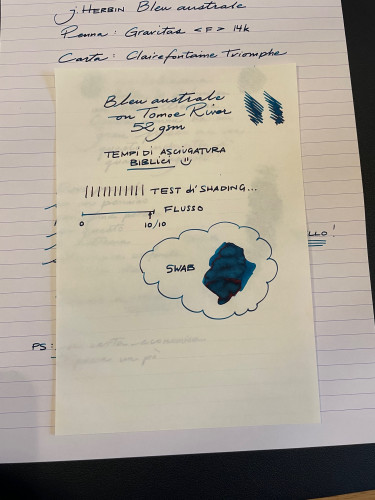 J. HERBIN Bleu australe
Penna: Gravitas <F> 14k
Carta: Clairefontaine Triomphe
Bleu australe
on Tomoe River
52 gsm
TEMPI DI ASCIUGATURA
BIBLICI
TEST di SHADING...
FLUSSO
0 10/10
LLO!
SWAB
PS: